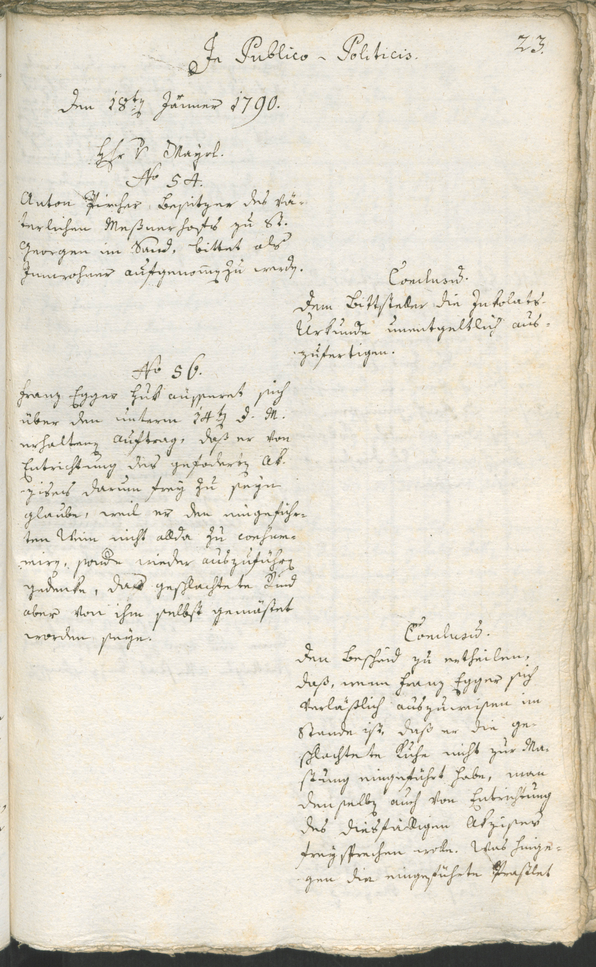 23.
In Publico-Politicis.
Den 18ten Jänner 1790.
H. Mayrl.
No 54.
Anton Pircher Besitzer des vä-
terlichen Meßnerhofs zu St.
Georgen im Sand, bittet als
Innwohner aufgenommen zu werden.
Conclusum.
Dem Bittsteller die Inkolats-
Urkunde unentgeltlich aus-
zufertigen.
No 56.
Franz Egger Hub äusseret sich
über den unterm 14ten d. M.
erhalten Auftrag, daß er von
Entrichtung des gefoderten Ak-
zises darum frey zu seyn
glaube, weil er den eingeführ-
ten Wein nicht allda zu consum-
miren, sonder wieder auszuführen
gedenke, das geschlachtete Rind
aber von ihm selbst gemästet
worden seye.
Conclusum.
Den Bescheid zu ertheilen,
daß, wenn Franz Egger sich
verläßlich auszuweisen im
Stande ist, daß er die ge-
schlachtete Kuhe nicht zur Ma-
stung eingeführt habe, man
denselben auch von Entrichtung
des diesfälligen Akzises
freysprechen wolle. Was hinge-
gen die eingeführte Praßlet